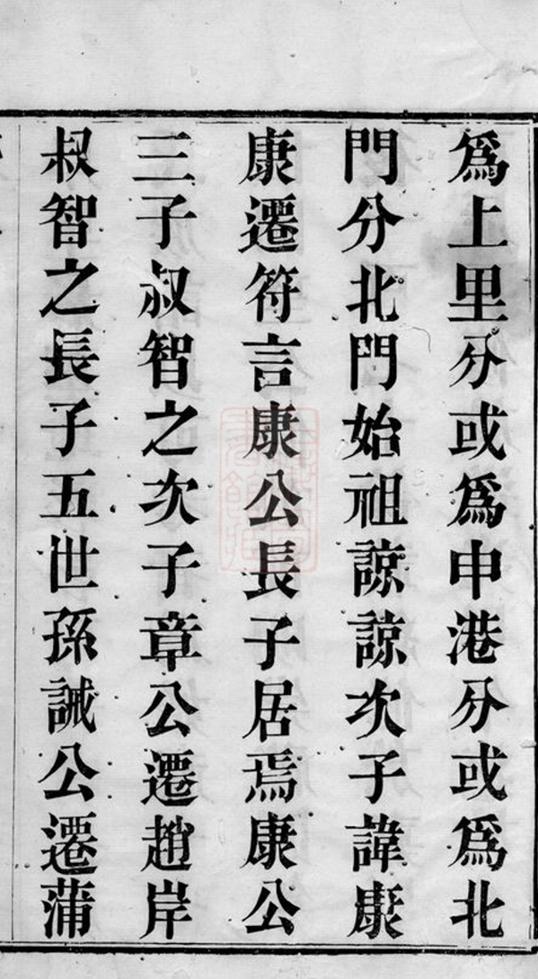 為上里分或為申港分或為北
門分北門始祖諒諒次子諱康
康遷符言康公長子居焉康公
三子叔智之次子章公遷趙岸
叔智之長子五世孫誠公遷蒲